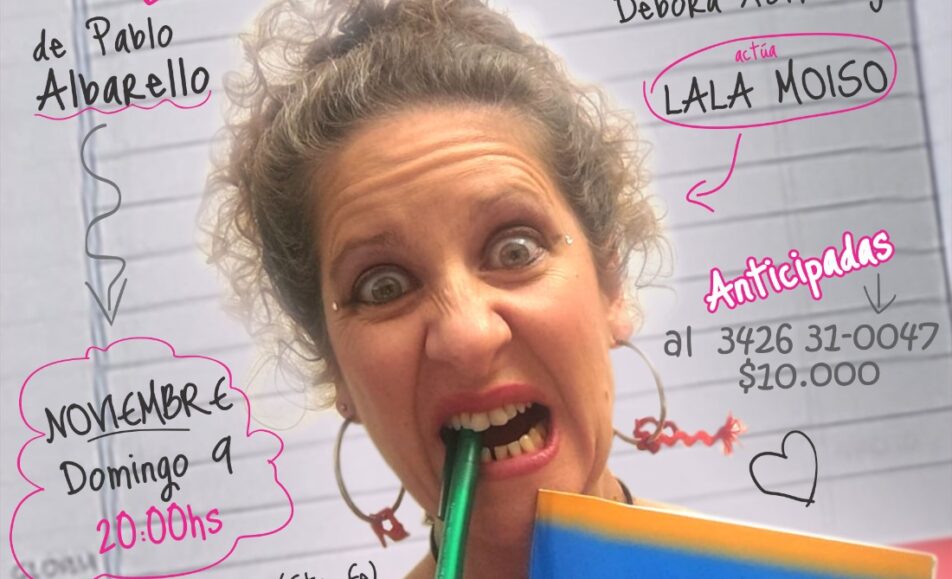 de Pablo
Albarello
actúa
LALA MOISO
Anticipadas
al 3426 31-0047
$10.000
NOVIEMBRE
Domingo 9
20:00hs